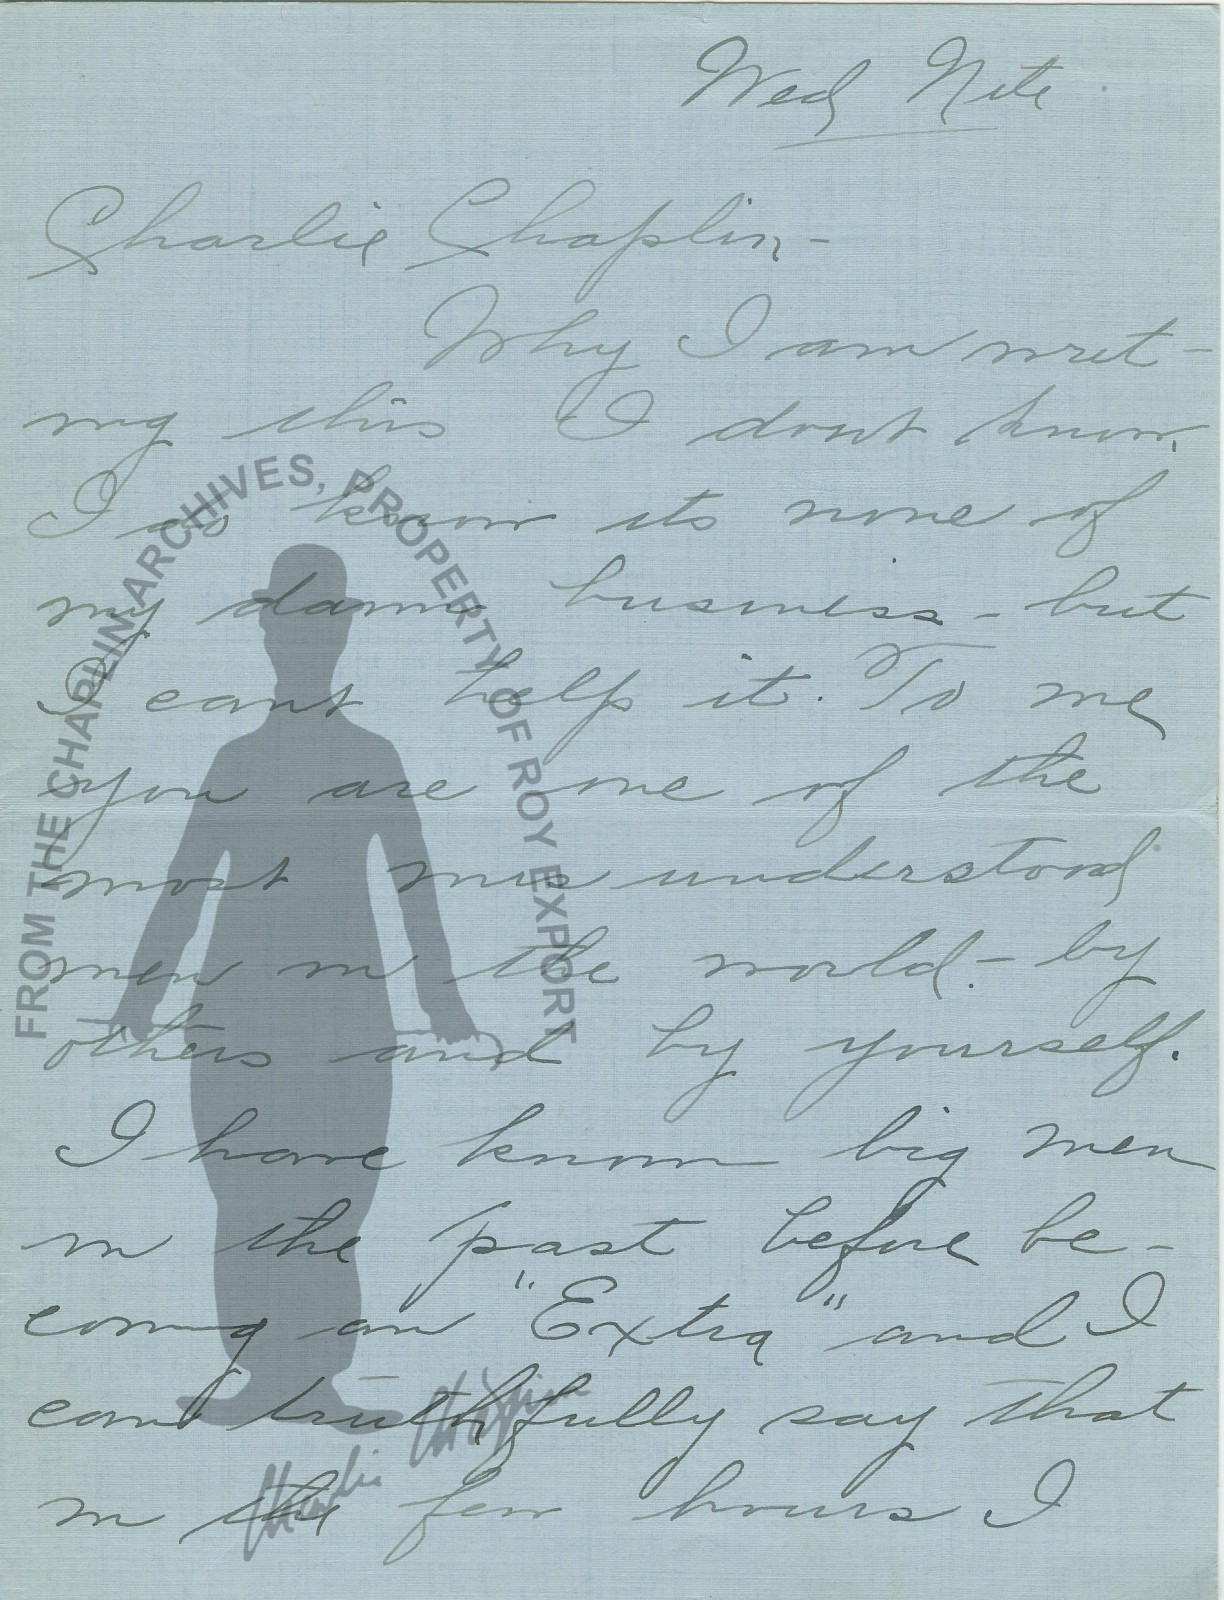 Wed Nite
Charlie Chaplin -
Why I am writ-
ing this I dont know.
I do know its none of
my damn business - but
I cant help it. To me
you are one of the
most misunderstood
men in the world - by
others and by yourself.
I have known big men
in the past before be-
coming an "Extra" and I
can truthfully say that
in the few hours I
FROM THE CHAPLIN ARCHIVES, PROPERTY OF ROY EXPORT
Charlie Chaplin